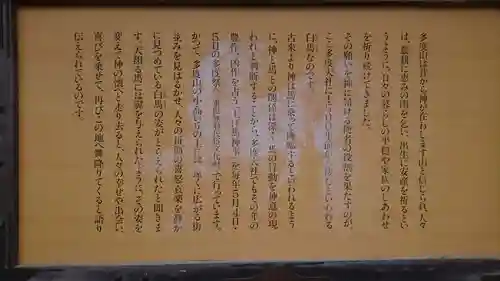 多度山は昔から神が在わします山と信じられ、人々
は、農耕に恵みの雨を乞い、出生に安産を祈るとい
うように、日々の暮らしの平穏や家族のしあわせ
を祈り続けてきました。
その願いを神に届ける使者の役割を果たすのが、
ここ多度大社に といわれる
白馬なのです。
古来より神は馬に乗って降臨すると言われるよう
に、神と馬との関係は深く、馬の行動を神意の現
われと判断することから、多度大社でもその年の
豊作、凶作を占う「上げ馬神事」を毎年5月4日・
5日の多度祭 で行っています。
かつて、多度山の小高い丘の上には、遠くに広がる街
並みを見はるかせ、人々の仔細の喜怒哀楽を静か
に見つめている白馬の姿がとらえられたと聞きま
す。天翔る馬には翼を与えられたように、その姿を
変えて神の懐へと走り去ると、人々の幸せや出会い、
喜びを乗せて、再びこの地へ舞降りてくると語り
伝えられているのです。